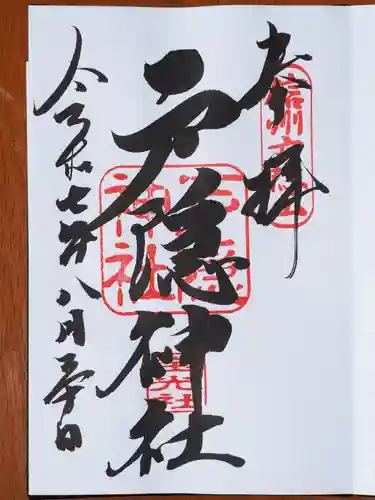 奉拝
信州戸隠山
戸隠神社
戸隠神社
宝光社
令和七年八月五日